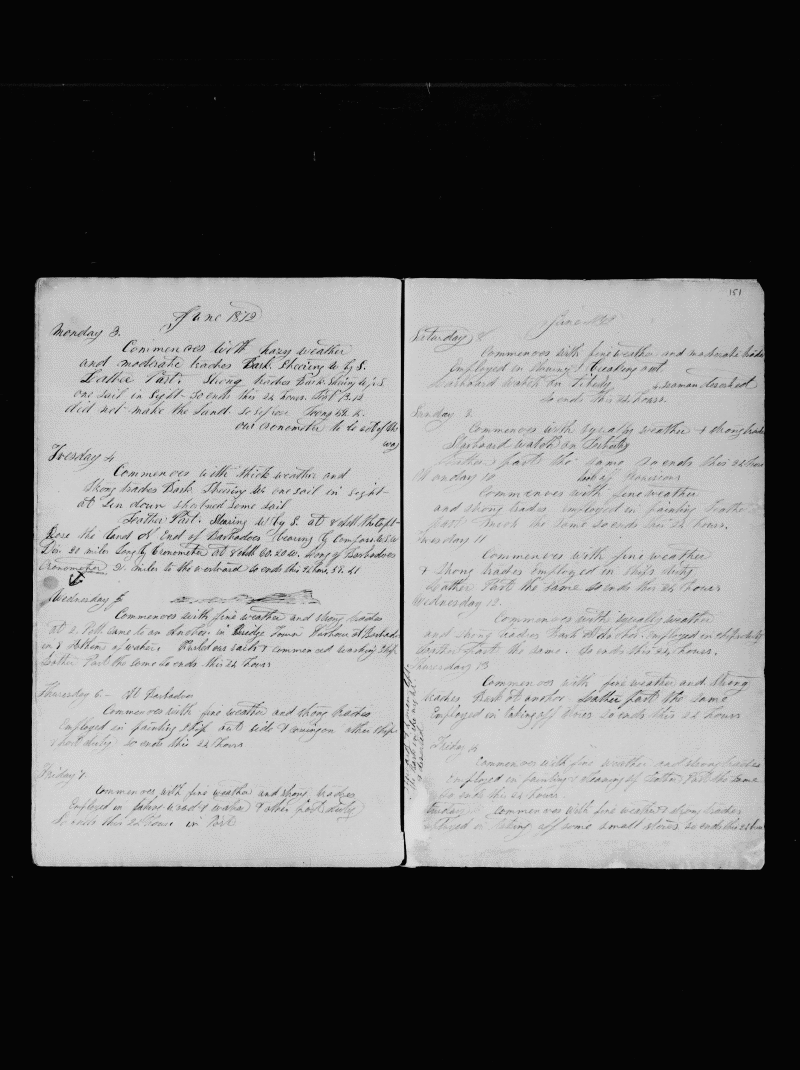 June 1872
Monday 3.
Commences With hazy weather
and moderate trades Bark Steering W by S.
Leather Part. Strong trades Bark Steering W by S
one sail in Sight. So ends this 24 hours.
did not make the Land.
our cronometer to be out of the
way
Tuesday 4
Commences with thick weather and
Strong trades Bark Steering one sail in Sight
at Sun down shortned some sail
Leather Part. Staring W by S. at
the land End of Barbadoes bearing by Compass
Dis. 20 miles Long by Cronometer at Long of Barbadoes
Cronometer 31 miles to the westward So ends this 24 hours
Wednesday 5
Commences with fine weather and strong trades
at 2. P.M. Came to an Anchor in Bridge Town Harbour at Barbadoes
in 7 Fathom of water. commenced washing Ship
Leather Part the Same So ends this 24 hours
Thursday 6 - At Barbadoes
Commences with fine weather and strong trades
Employed in painting Ship out side & other Ship
duty so ends this 24 hours
Friday 7
Commences with fine weather and strong trades
Employed in wood & water & other port duty
So ends this 24 hours in Port
151
June 1872
Saturday 8
Commences with fine weather and moderate trades
Employed in
Larboard watch on Liberty seaman deserted
So ends this 24 hours
Sunday 9.
Commences with squally weather & strong trades
Starboard watch on Liberty
Leather part the same So ends this 24 hours
Monday 10
Commences with fine weather
and strong trades employed in painting Leather
part much the same so ends this 24 hours.
Tuesday 11
Commences with fine weather
& Strong trades Employed in Ship's duty
Leather Part the same So ends this 24 hours
Wednesday 12
Commences with squally weather
and strong trades Bark At Anchor. Employed in ship duty
Leather part the same. So ends this 24 hours.
Thursday 13
Commences with fine weather and strong
trades Bark At anchor Leather part the same
Employed in taking off stores so ends this 24 hours
Friday
Commences with fine weather and strong trades
employed in painting & cleaning up Leather Part the same
So ends this 24 hours
Commences with fine weather & strong trades
in taking off some small stores so ends this 24 hours